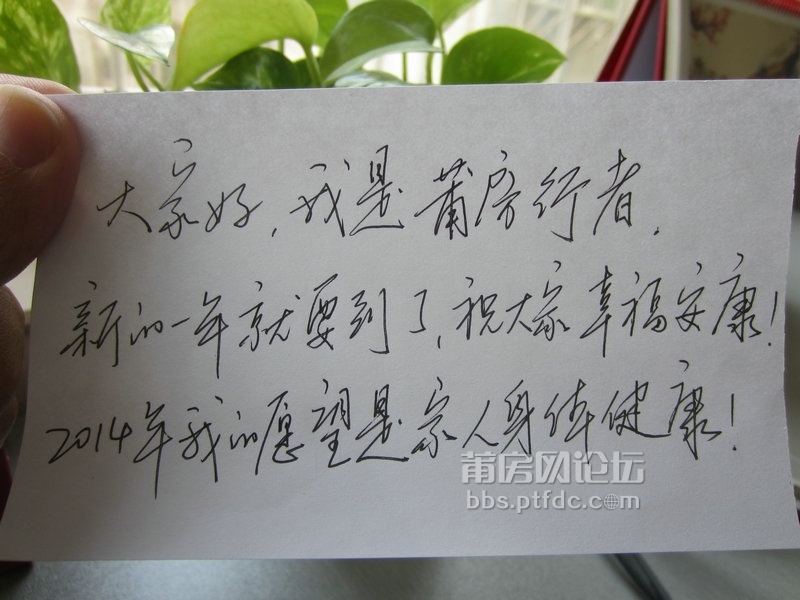 大家好,我是莆房行者.
新的一年就要到了,祝大家幸福安康!
2014年我的愿望是家人身体健康!
莆房网论坛
bbs.ptfdc.com